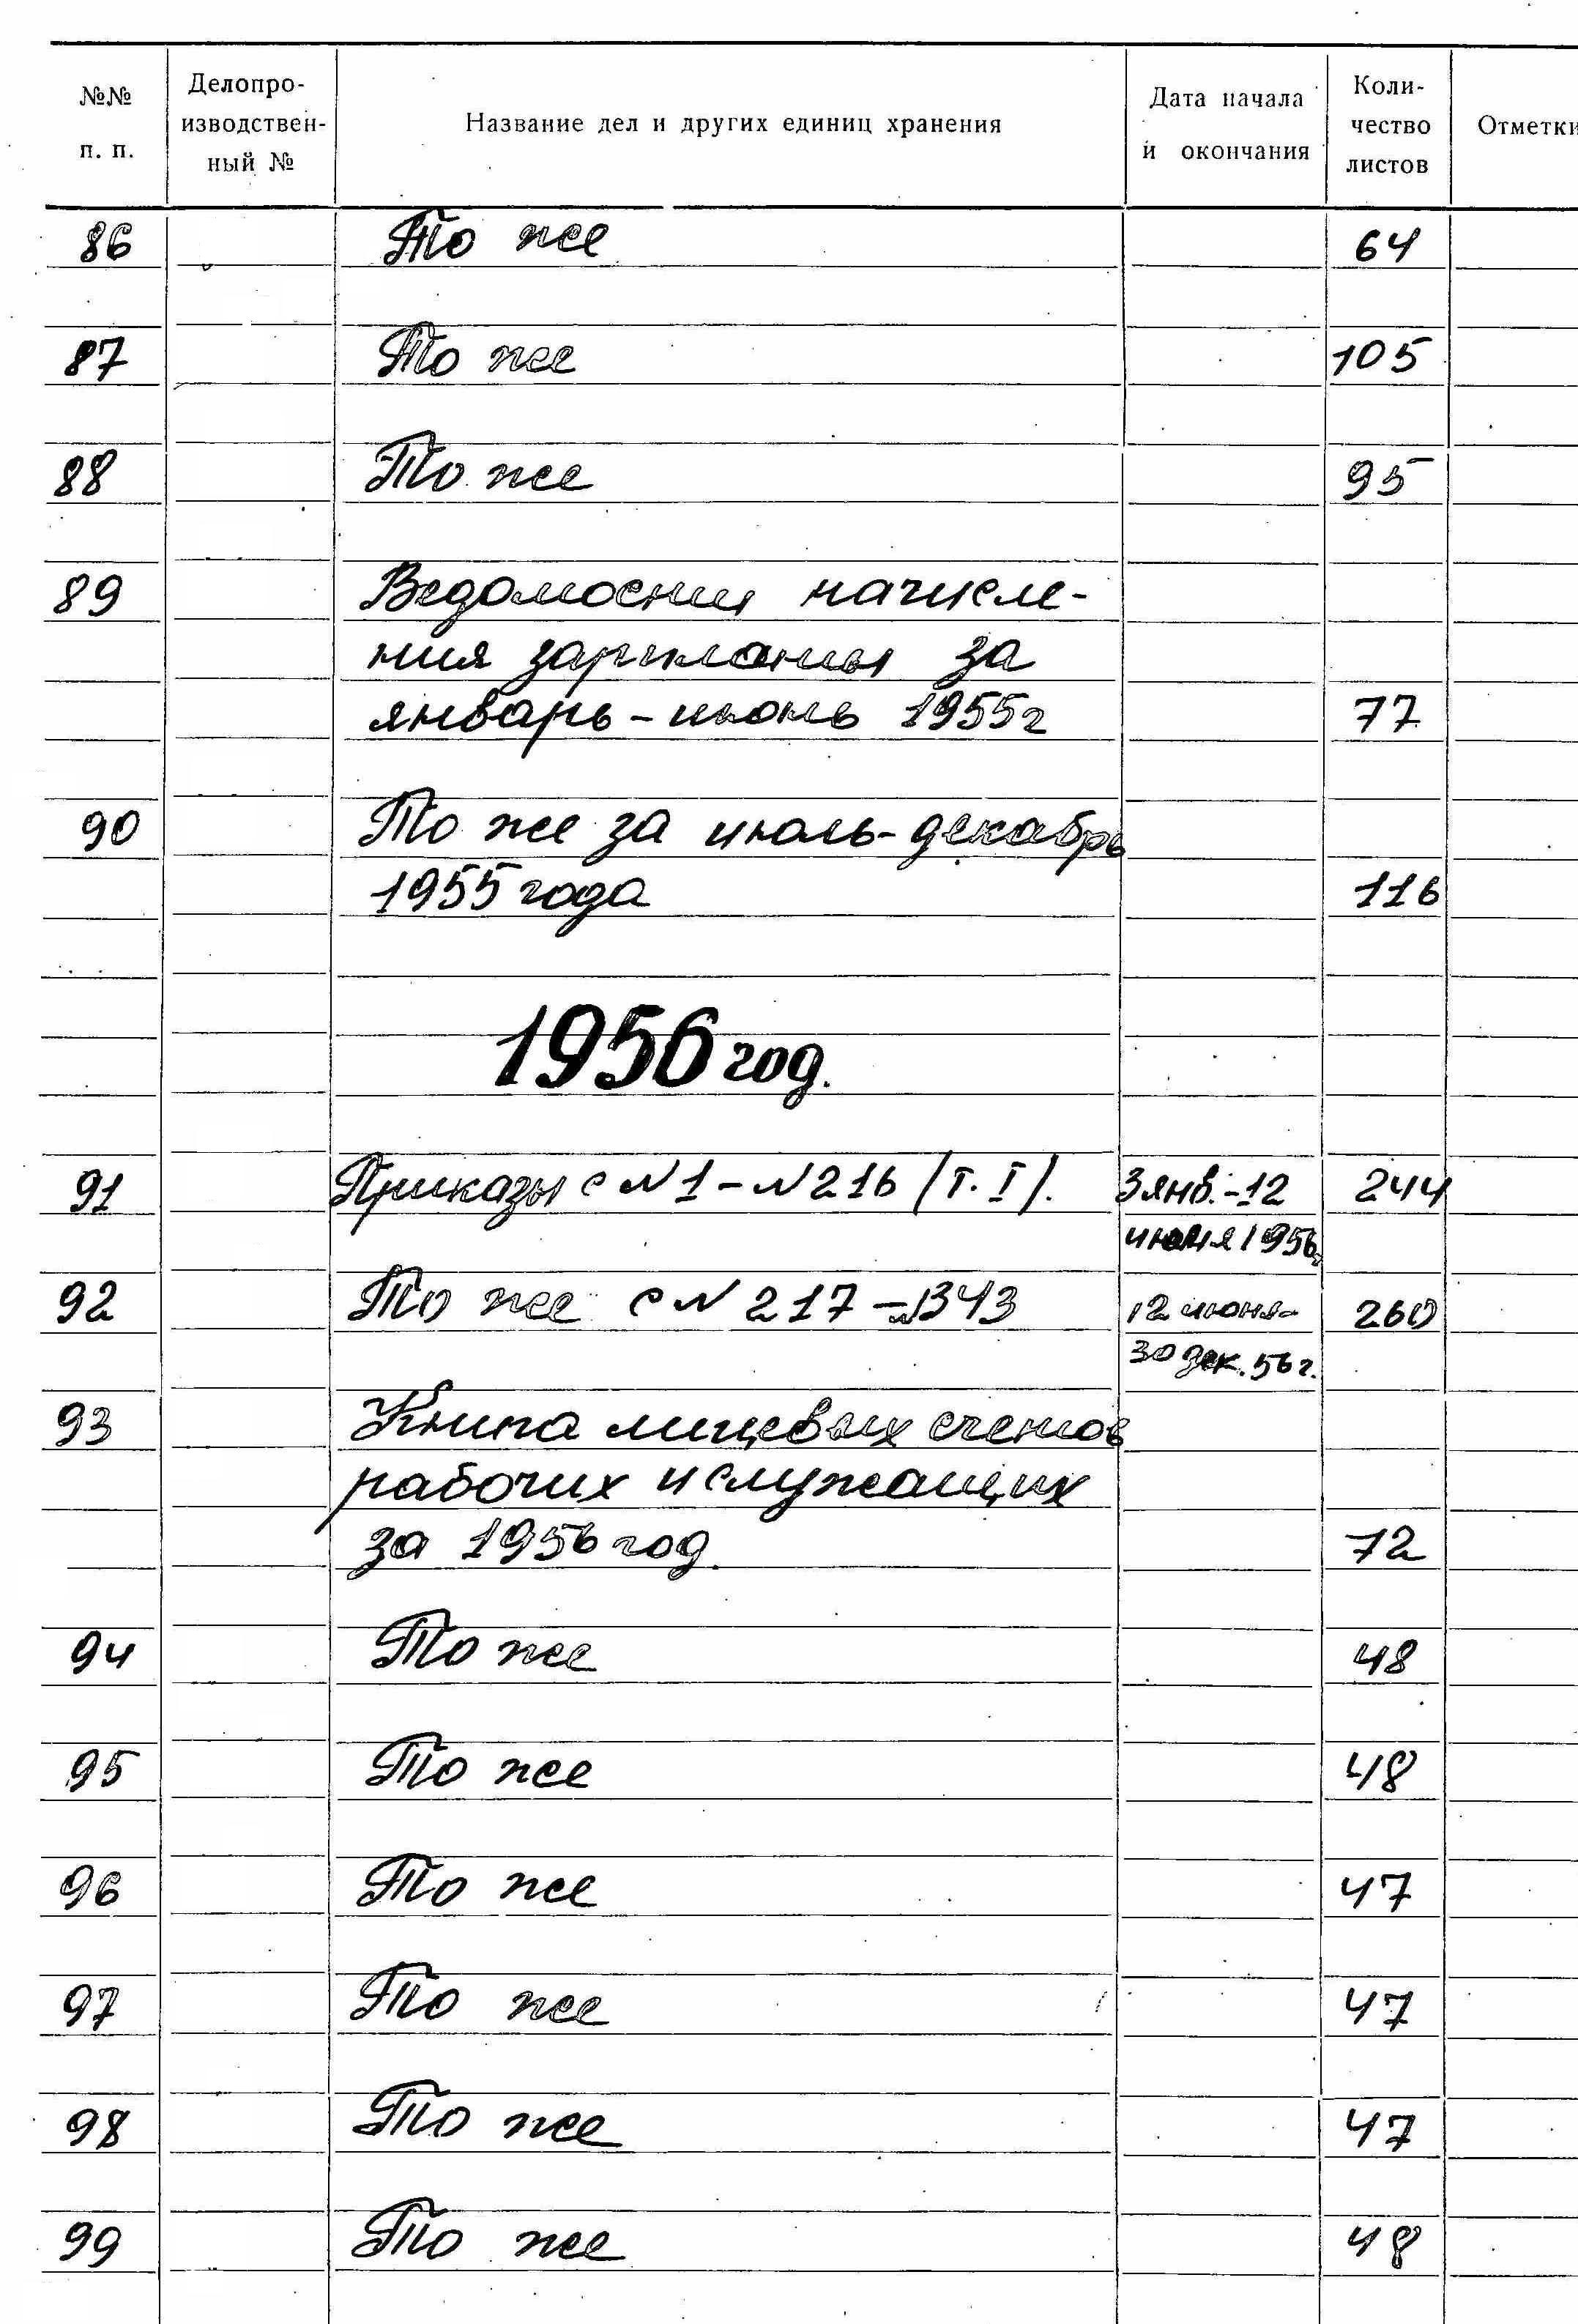 №№ п. п. Делопроизводствен-ный № Название дел и других единиц хранения Дата начала и окончания Коли-чество листов Отметки
86 То же 64
87 То же 105
88 То же 95
89 Ведомости начисле-
ния зарплаты за
январь-июнь 1955г 77
90 То же за июль-декабрь
1955 года 116
1956 год.
91 Приказы с №1-№216 /Т. I/. 3 янв.-12 244
июня 1956г
92 То же с №217-№343 12 июня- 260
30 дек. 56г.
93 Книга лицевых счетов
рабочих и служащих
за 1956 год. 72
94 То же 48
95 То же 48
96 То же 47
97 То же 47
98 То же 47
99 То же 48